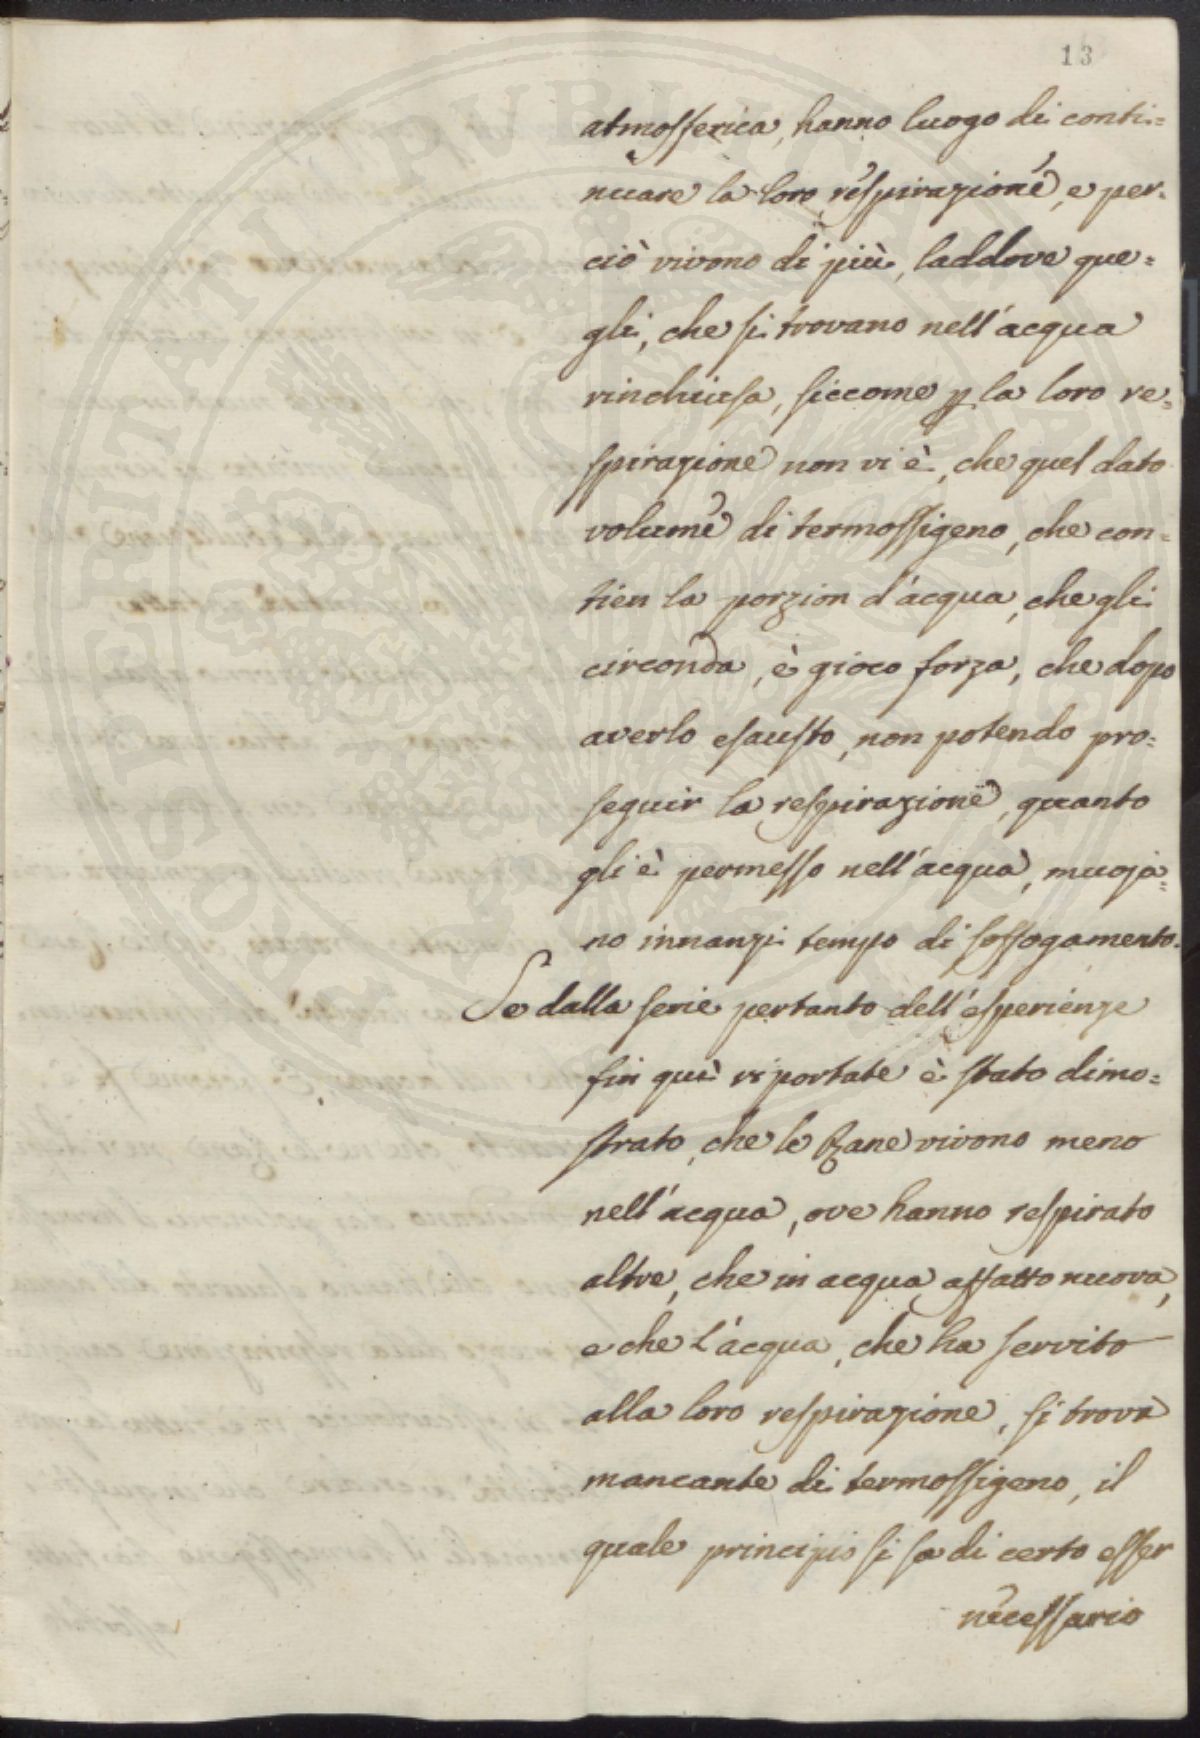 13
atmosferica, hanno luogo di conti=
nuare la loro respirazione, e per=
ciò vivono di più, laddove que=
gli, che si trovano nell'acqua
rinchiusa, siccome p la loro re=
spirazione non vi è, che quel dato
volume di termossigeno, che con=
tien la porzion d'acqua, che gli
circonda, è gioco forza, che dopo
averlo esausto, non potendo pro=
seguir la respirazione, quanto
gli è permesso nell'acqua, muoja=
no innanzi tempo di soffogamento.
Se dalla serie pertanto dell'esperienze
fin quì riportate è stato dimo=
strato, che le Rane vivono meno
nell'acqua, ove hanno respirato
altre, che in acqua affatto nuova,
e che l'acqua, che ha servito
alla loro respirazione, si trova
mancante di termossigeno, il
quale principio si sa di certo esser
necessario
PROSPERITATI PUBLICAE